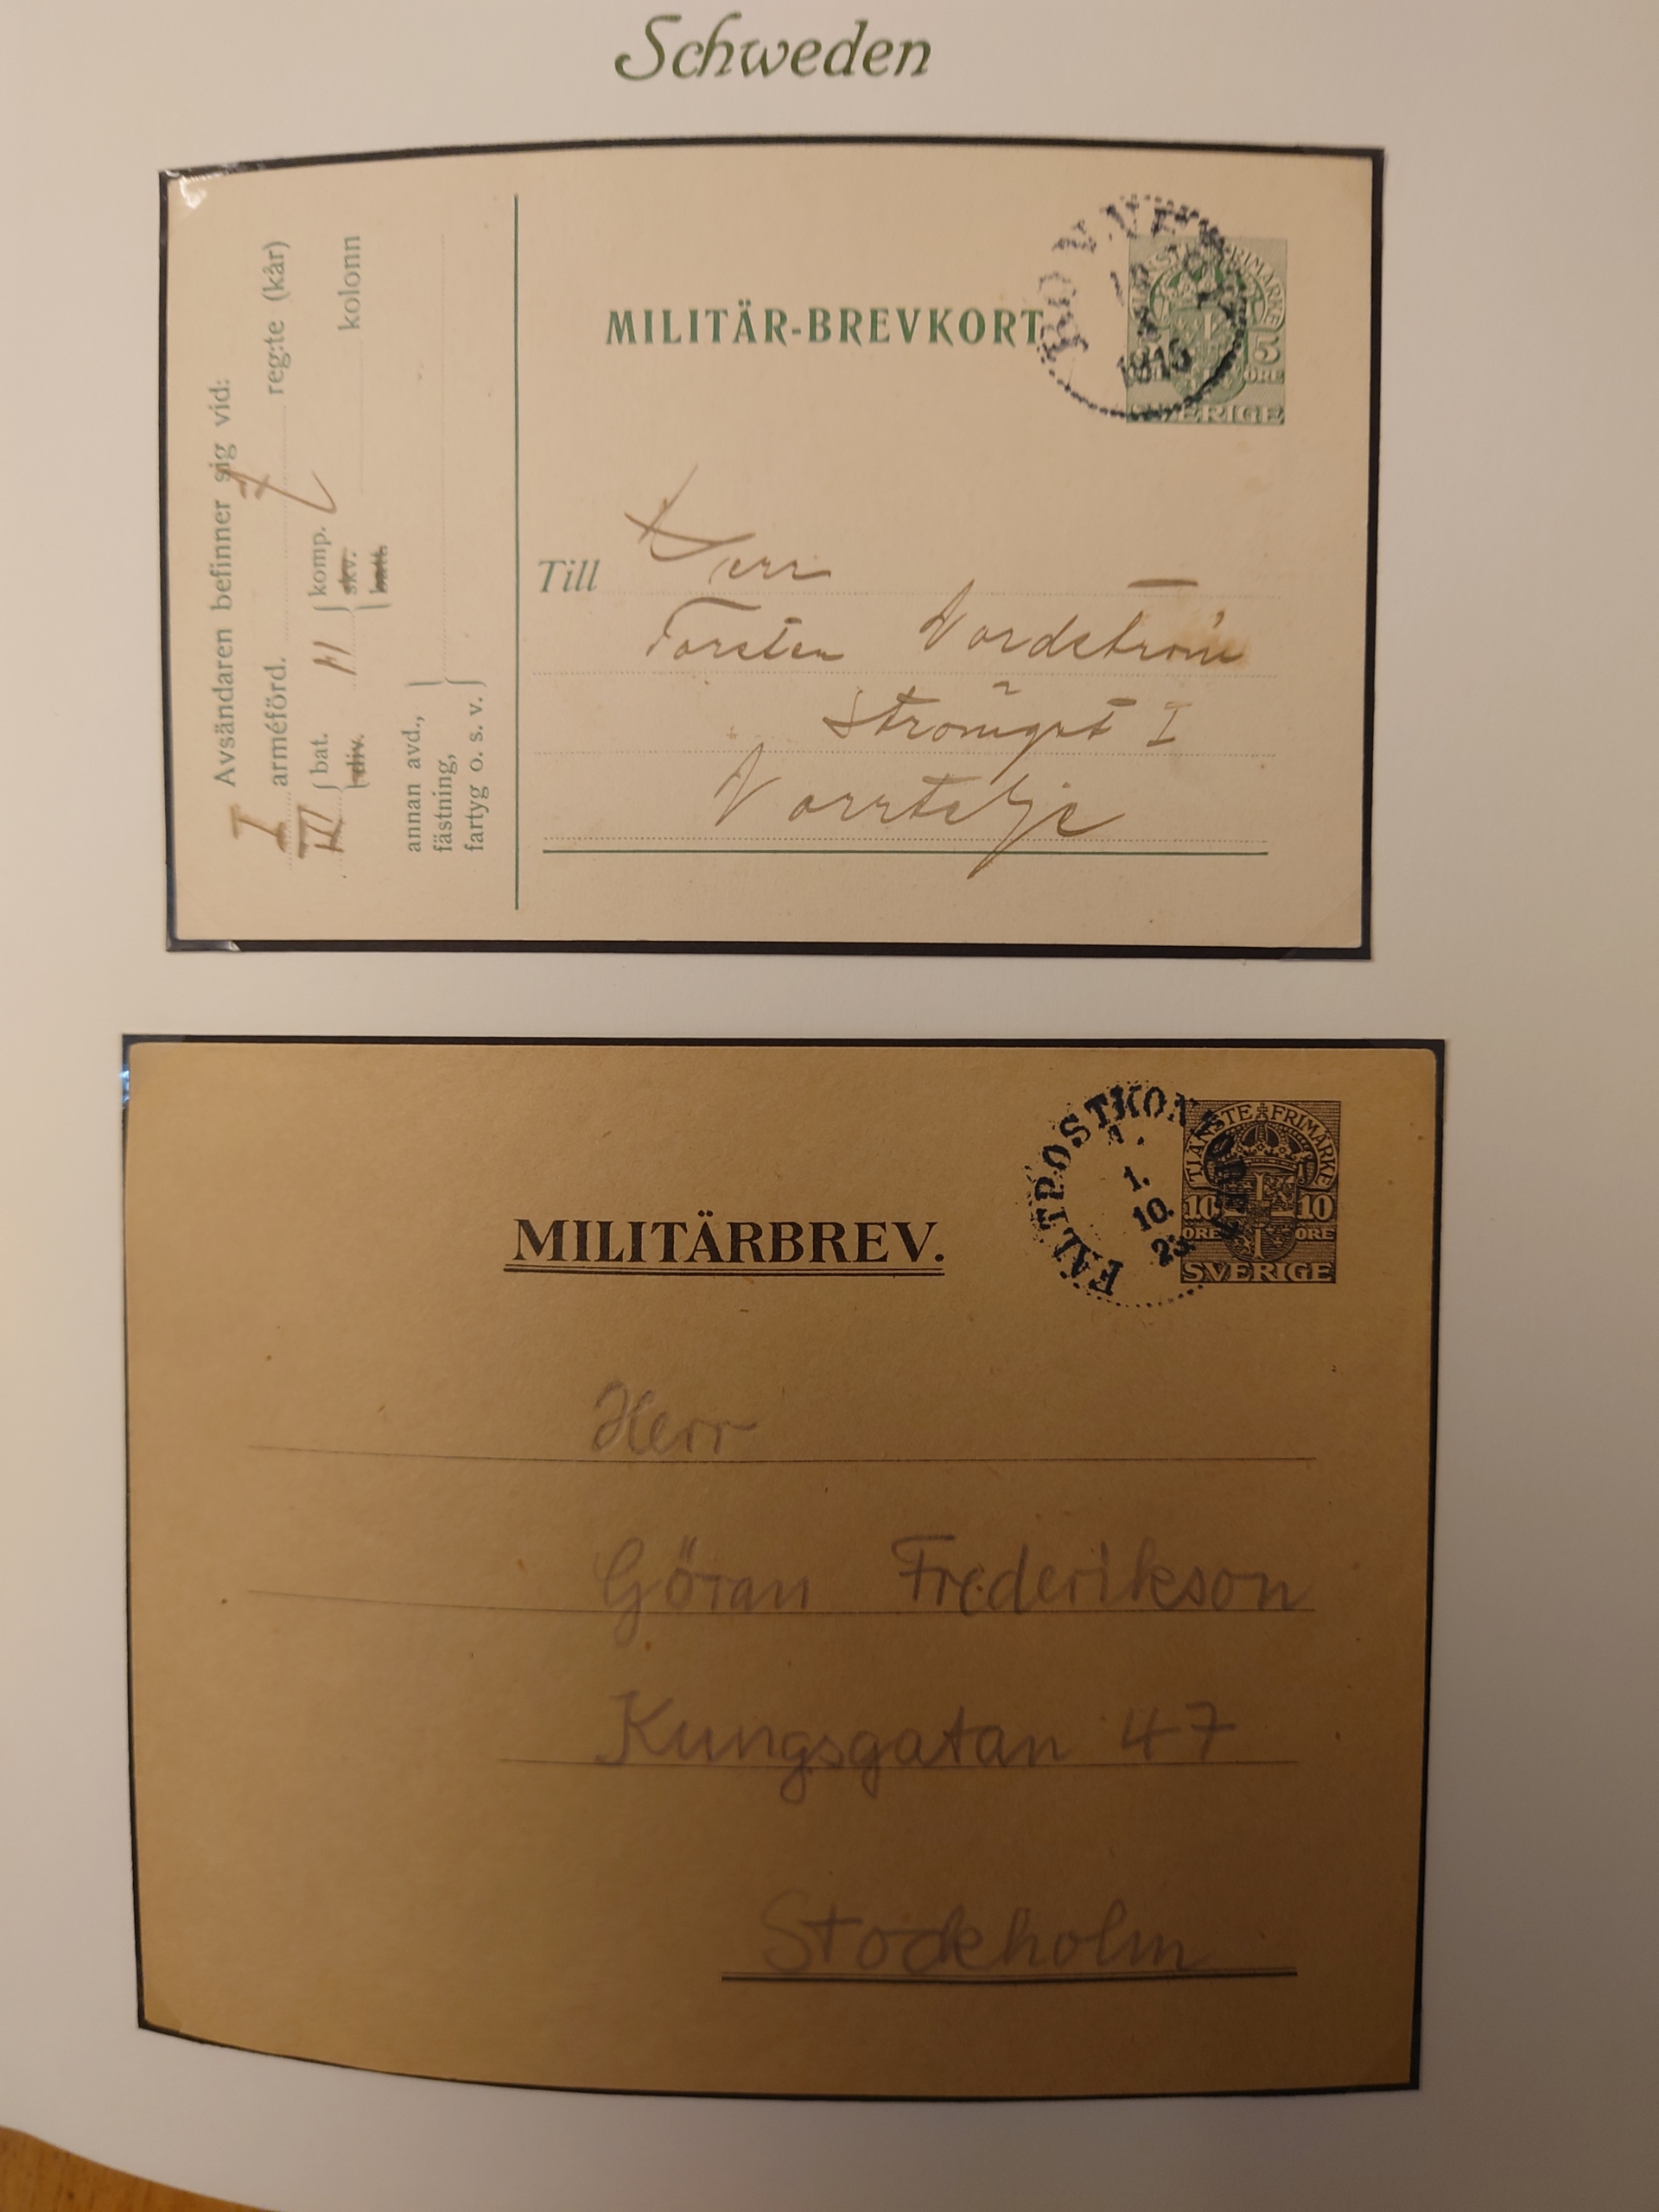 Schweden
MILITÄR-BREVKORT
TJÄNSTE FRIMÄRKE
5
ÖRE
SVERIGE
1915
Avsändaren befinner sig vid:
I arméförd. 7 reg:te (kår)
III bat. 11 komp. kolonn
div. skv.
batt.
annan avd.,
fästning,
fartyg o. s. v.
Till Herr
Torsten Nordström
Strömgat I
Norrtelje
MILITÄRBREV.
FÄLTPOSTKONTORET
1.
10.
23
TJÄNSTE FRIMÄRKE
10 10
ÖRE ÖRE
SVERIGE
Herr
Göran Frederikson
Kungsgatan 47
Stockholm